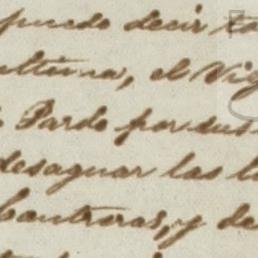 puedo decir
ultima, el
Pardo por sus
desaguar las
Contreras, y de